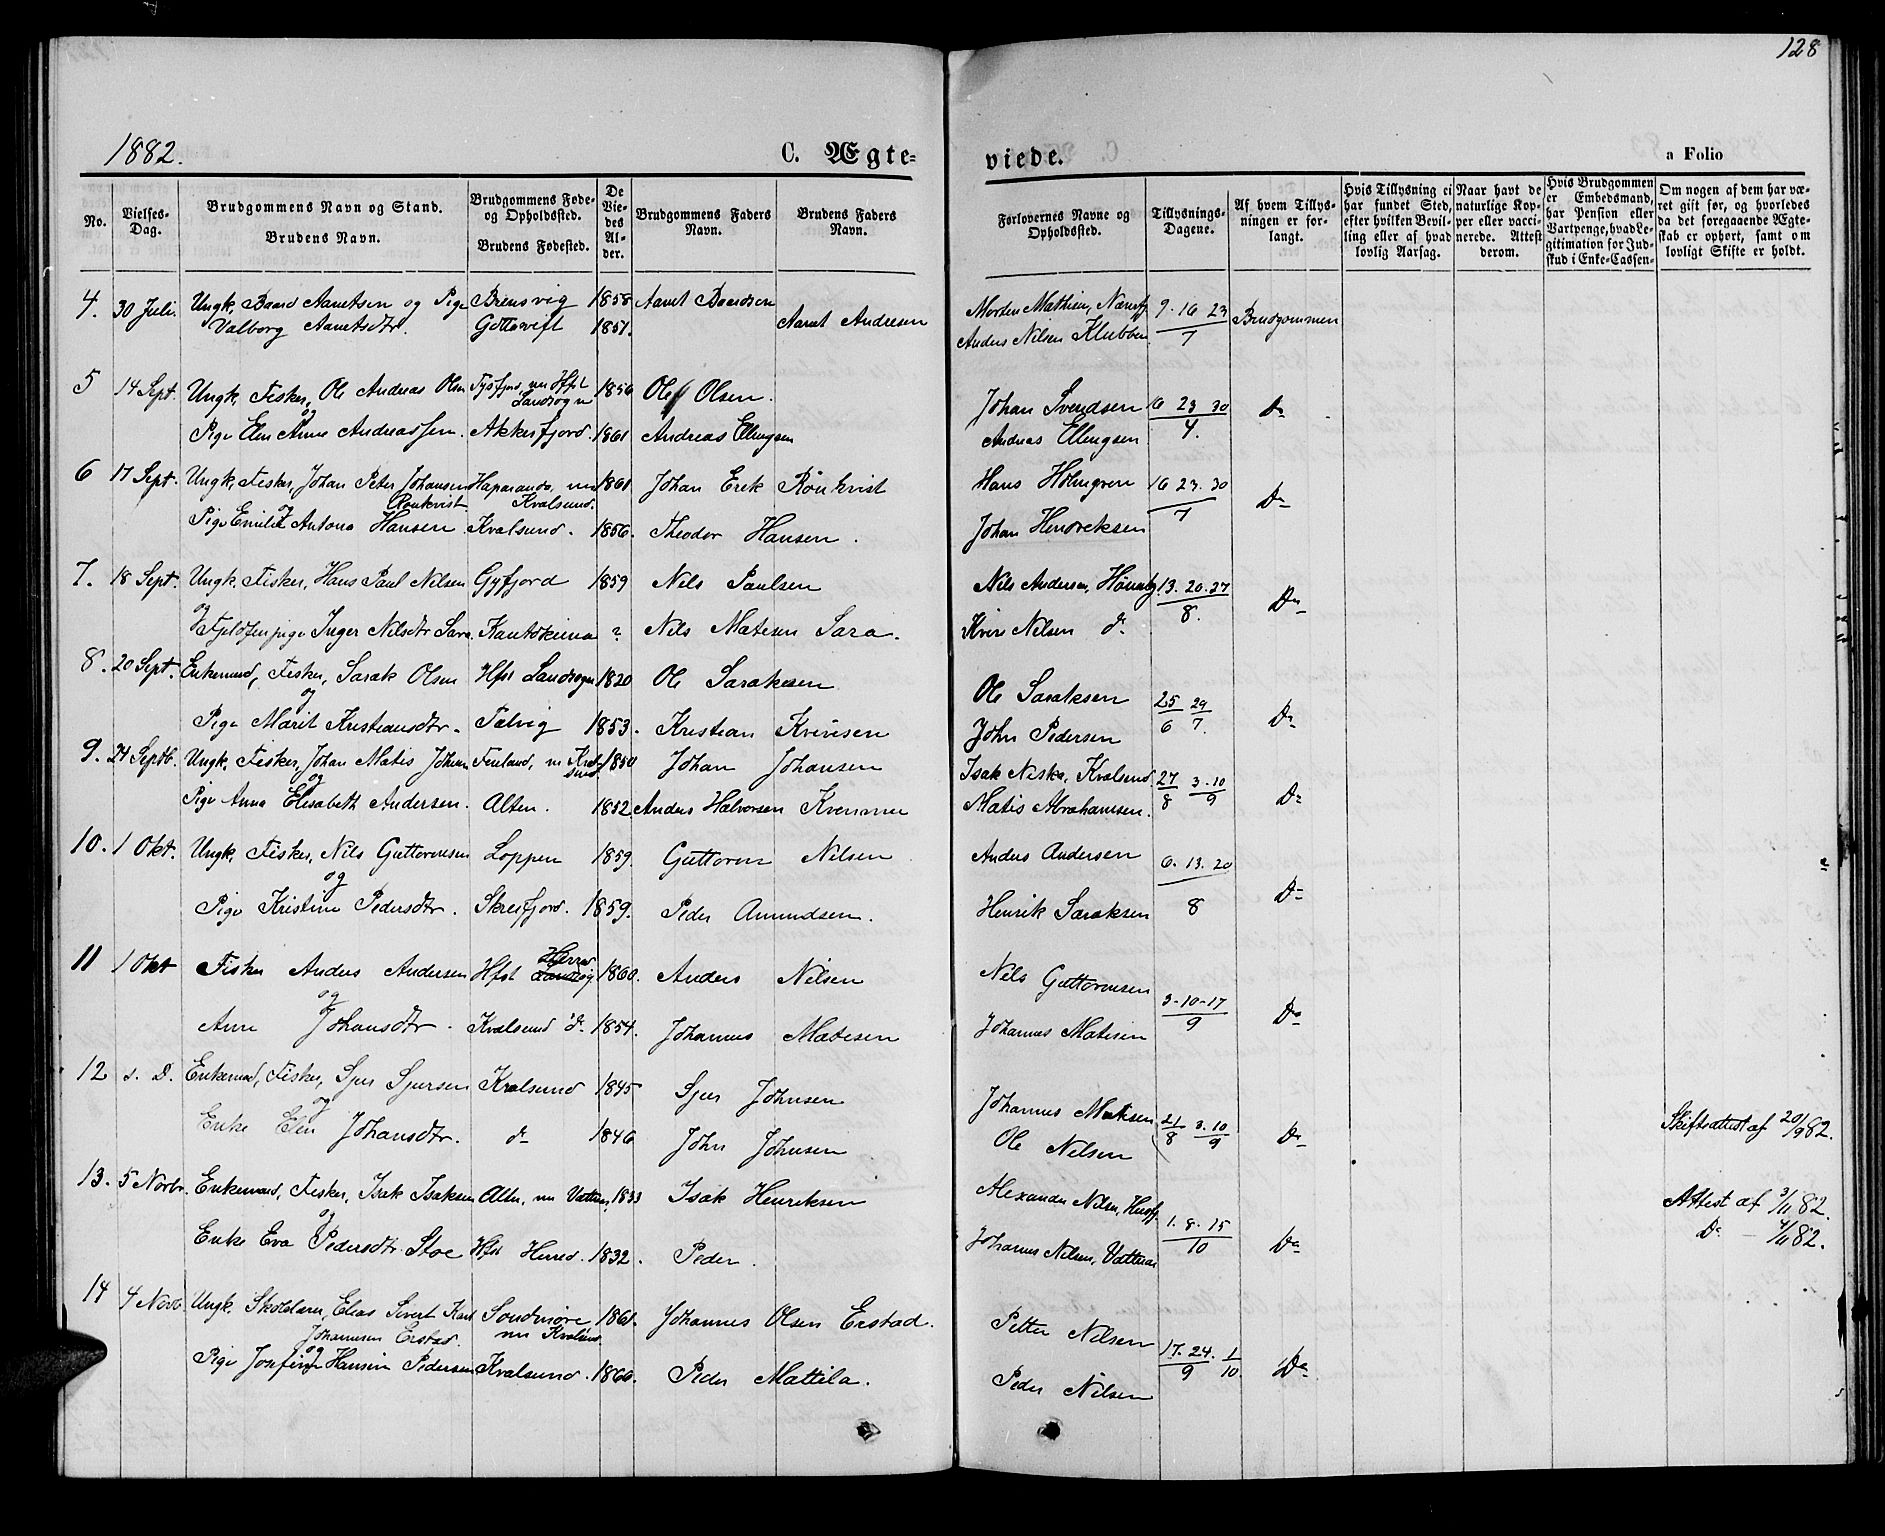 128
1882.
C. Ægte=
viede.
a Folio
No.
Vielses-Dag.
Brudgommens Navn og Stand.
Brudens Navn.
Brudgommens Føde- og Opholdssted.
Brudens Fødested.
De Viedes Alder.
Brudgommens Faders Navn.
Brudens Faders Navn.
Forlovernes Navne og Opholdssted.
Tillysnings-Dagene.
Af hvem Tillysningen er forlangt.
Hvis Tillysning ei har fundet Sted, efter hvilken Bevilling eller af hvad lovlig Aarsag.
Naar havt de naturlige Kopper eller vaccinerede. Attest derom.
Hvis Brudgommen er Embedsmand, har Pension eller Vartpenge, hvad Legitimation for Indskud i Enke-Cassen-
Om nogen af dem har været gift før, og hvorledes da det foregaaende Ægteskab er ophørt, samt om lovligt Skifte er holdt.
4. 30 Juli. Ungk. Baard Aamtsen og Pige Brensvig 1858 Aamt Baardsen Morten Mathisen, 9. 16 23 Brudgommen
Valborg Aamtsdtr. 1851. Aamt Andresen Anders Nilsen Klubben 7
5 14 Sept. Ungk. Fisker, Ole Andreas Olsen Tysfjord, nu Hfst Landsogn 1856 Ole Olsen. Johan Svendsen 16 23 30 Do
og
Pige Elen Anne Andreassen. Akkerfjord. 1861 Andreas Ellingsen Andreas Ellingsen 4.
6 17 Sept. Ungk. Fisker, Johan Peter Johansen Haparanda, nu 1861 Johan Erik Rönkvist Hans Holmgren 16 23. 30 Do
Rönkvist Kvalsund.
og
Pige Emilie Antona Hansen Kvalsund. 1856. Theodor Hansen. Johan Hendreksen 7
7. 18 Sept. Ungk. Fisker, Hans Paul Nilsen Gyfjord 1859 Nils Paulsen Nils Andersen, 13. 20. 27 Do
og Fjeldfinpige Inger Nilsdtr Sara Kautokeino ? Nils Matesen Sara. Nilsen do 8.
8. 20 Sept. Enkemand, Fisker, Sarak Olsen Hfst Landsogn 1820 Ole Saraksen Ole Saraksen 25/6 29/7. Do
og
Pige Marit Kristiansdtr. Talvig 1853. Kristian Kvivesen John Pedersen
9. 24 Septb. Ungk. Fisker, Johan Matis Johnsen Finland, nu Kvalsund 1850 Johan Johansen Isak Niska, Kvalsund 27/8 3.10/9 Do
og
Pige Anna Elisabeth Andersen. Alten. 1852 Anders Halvorsen Matis Abrahamsen.
10. 1 Okt. Ungk. Fisker, Nils Guttormsen Loppen 1859. Guttorm Nilsen Anders Andersen 6. 13. 20 Do
og
Pige Kristine Pedersdtr. Skreifjord. 1859. Peder Amundsen. Henrik Saraksen 8
11 1 Okt Fisker Anders Andersen Hfst Herred 1860. Anders Nilsen Nils Guttormsen 3-10-17 Do
og
Ane Johansdtr. Kvalsund do. 1854. Johannes Matesen Johannes Matesen 9
12 s. D. Enkemand, Fisker, Sjur Sjursen Kvalsund 1845 Sjur Johnsen Johannes Matesen 21/8 3.10/9 Do
og
Enke Elen Johansdtr. do 1846 John Johnsen Ole Nilsen Skifteattest af 20/9 82.
13. 5 Novbr. Enkemand, Fisker, Isak Isaksen Alten, nu 1833 Isak Henriksen Alexander Nilsen, 1. 8. 15 Do Attest af 3/11 82.
og
Enke Eva Pedersdtr. Stoe Hfst Herred. 1832. Peder. Johannes Nilsen, 10 Do - 4/11 82.
14 4 Novb. Ungk. Skolelærer, Elias Sivert Karl Søndmøre 1861. Johannes Olsen Erstad. Petter Nilsen 17. 24. 1 Do
Johannesen Erstad. nu Kvalsund.
og
Pige Josefine Hansine Pedersen Kvalsund. 1860. Peder Mattila. Peder Nilsen 9 10